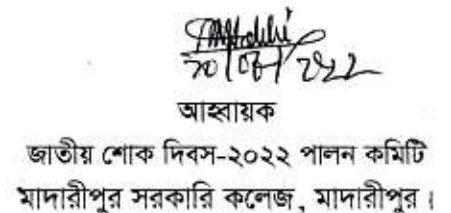 আহ্বায়ক
জাতীয় শোক দিবস-২০২২ পালন কমিটি
মাদারীপুর সরকারি কলেজ, মাদারীপুর।